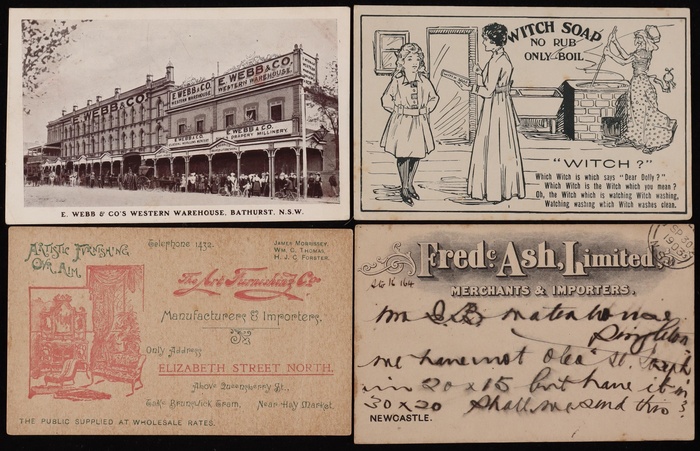 E. WEBB & CO.
E. WEBB & CO.
WESTERN WAREHOUSE.
E. WEBB & CO.
WESTERN WAREHOUSE.
E. WEBB & CO.
DRAPERY MILLINERY
E. WEBB & CO'S WESTERN WAREHOUSE, BATHURST, N.S.W.
WITCH SOAP
NO RUB
ONLY BOIL
"WITCH?"
Which Witch is which says "Dear Dolly?"
Which Witch is the Witch which you mean?
Oh, the Witch which is watching Witch washing,
Watching washing which Witch washes clean.
ARTISTIC FURNISHING
OUR AIM.
Telephone 1432.
JAMES MORRISSEY.
WM. C. THOMAS.
H. J. C. FORSTER.
The Art Furnishing Co
Manufacturers & Importers.
Only Address
ELIZABETH STREET NORTH.
Above Queensberry St.,
Take Brunswick Tram, Near Hay Market.
THE PUBLIC SUPPLIED AT WHOLESALE RATES.
Fredc. Ash, Limited,
MERCHANTS & IMPORTERS.
Singleton
we have not
in 20 x 15 but have it in
30 x 20 Shall we send this?
NEWCASTLE.